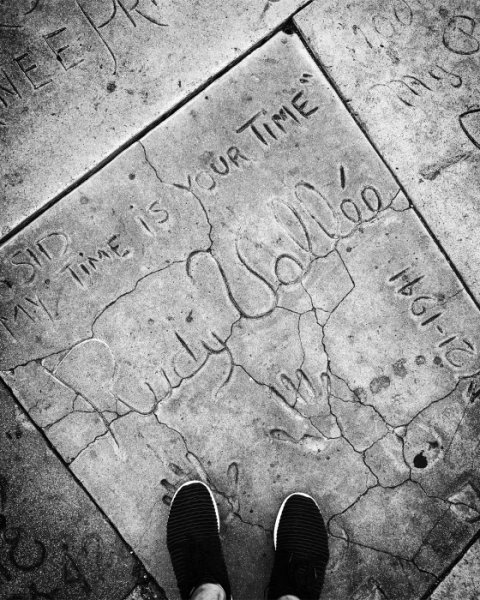 SID
MY TIME IS YOUR TIME"
Rudy Vallée
21-1941